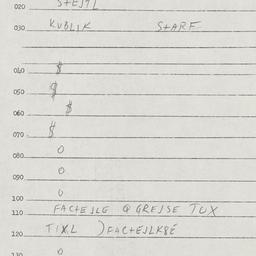 020 STEJTL
030 KUBLIK STARE
040 $
050 $
060 $
070 $
080 0
090 0
100 0
110 FACTEJLE @ GREJSE TUX
120 TIXL )FACTEJLKBÉ
130 0